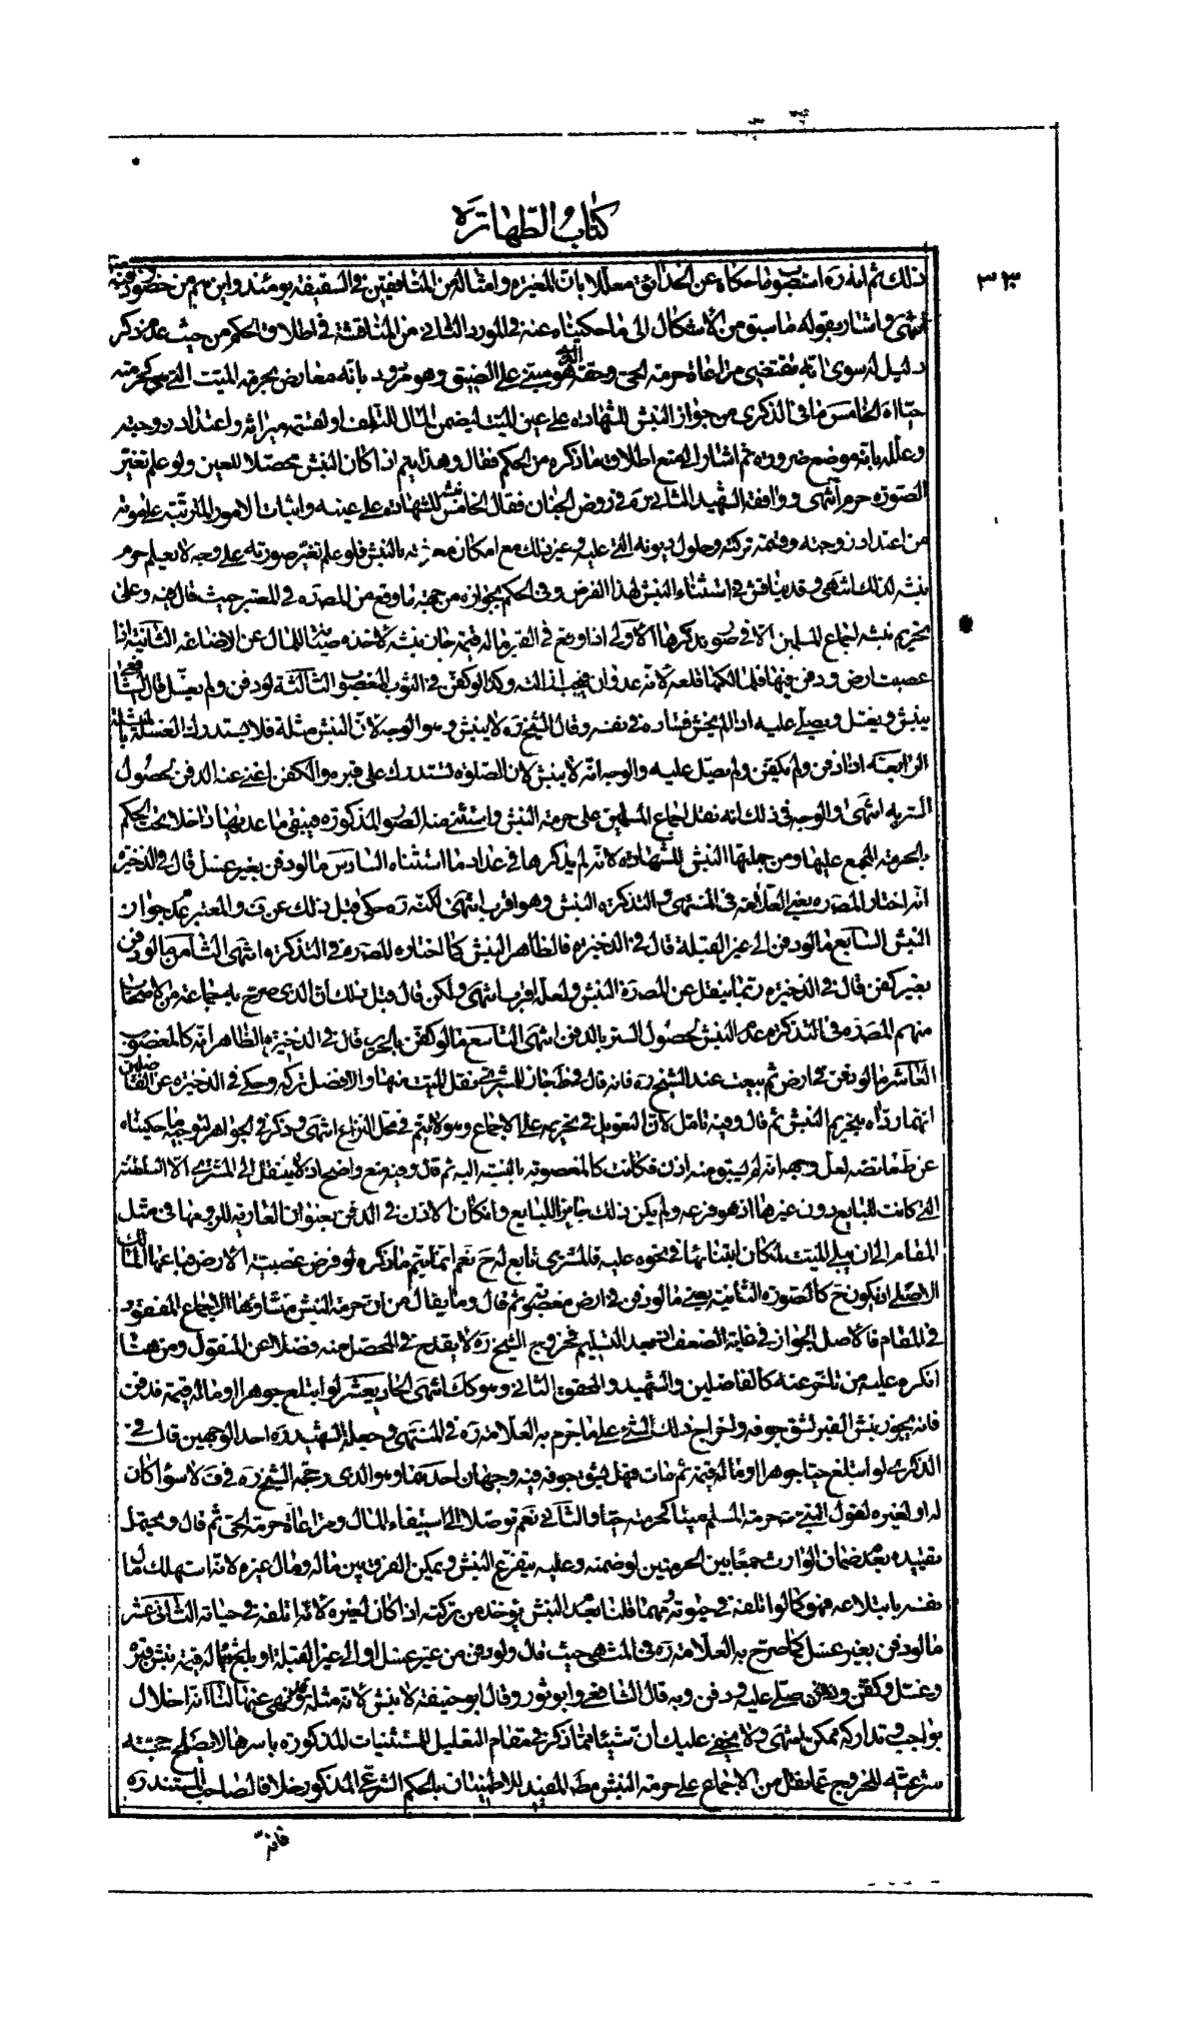 كتاب الطهارة
٣٢٠
ذلك ثم انه ره استصوب ما حكاه عن الحدائق معللا بان المغيرة وامثاله من المنافقين في السقيفة يومئذ واين هم من حضور دفنه
انتهى واشار بقوله ما سبق من الاشكال الى ما حكيناه عنه في المورد الثانى من المناقشة في اطلاق الحكم من حيث عدم ذكر
دليل له سوى انه مقتضى مراعاة حرمة الحى وحقه مبنى على الضيق وهو مردود بانه معارض بحرمة الميت التى هى كحرمته
حيا اه الخامس ما فى الذكرى من جواز النبش للشهادة على عين الميت ليضمن المال التالف او لقسمة ميراثه واعتداد زوجته
وعلله بانه موضع ضرورة ثم اشار الى منع اطلاق ما ذكره من الحكم فقال وهذا يتم اذا كان النبش محصلا للعين ولو علم تغير
الصورة حرم انتهى ووافقه الشهيد الثانى ره في روض الجنان فقال الخامس للشهادة على عينه واثبات الامور المترتبة على موته
من اعتداد زوجته وقسمة تركته وحلول ديونه التى عليه وغير ذلك مع امكان معرفته بالنبش فلو علم تغير صورته على وجه لا يعلم حرم
نبشه لذلك انتهى وقد يناقش في استثناء النبش لهذا الفرض وفى الحكم بجوازه من جهة ما وقع من المصنف ره في المعتبر حيث قال فيه وعلى
تحريم نبشه اجماع المسلمين الا في صور نذكرها الاولى اذا وقع في القبر ماله قيمة جاز نبشه لاخذه صيانة للمال عن الاضاعة الثانية اذا
غصبت ارض ودفن فيها فلمالكها قلعه لانه عدوان فيجب ازالته وكذا لو كفن في الثوب المغصوب الثالثة لو دفن ولم يغسل قال الشافعى
ينبش ويغسل ويصلى عليه اذا لم يخش فساده في نفسه وقال الشيخ ره لا ينبش وهو الوجه لان النبش مثلة فلا يستدرك الغسل بالمثلة
الرابعة اذا دفن ولم يكفن ولم يصل عليه والوجه انه لا ينبش لان الصلوة تستدرك على قبره والكفن اغنى عنه الدفن لحصول
الستر به انتهى والوجه في ذلك انه نقل اجماع المسلمين على حرمة النبش واستثنى منه الصور المذكورة فيبقى ما عداها داخلا تحت الحكم
بالحرمة المجمع عليها ومن جملتها النبش للشهادة لانه لم يذكرها في عداد ما استثناه السادس ما لو دفن بغير غسل قال في الذخيرة
انه اختار المصنف ره يعنى العلامة في المنتهى والتذكرة النبش وهو اقرب انتهى لكنه ره حكى قبل ذلك عن ف والمعتبر عدم جواز
النبش السابع ما لو دفن الى غير القبلة قال في الذخيرة فالظاهر النبش كما اختاره المصنف ره في التذكرة انتهى الثامن ما لو دفن
بغير كفن قال في الذخيرة ربما ينقل عن المصنف ره النبش ولعله اقرب انتهى ولكن قال قبل ذلك ان الذى صرح به جماعة من الاصحاب
منهم المصنف ره في التذكرة عدم النبش لحصول الستر بالدفن انتهى التاسع ما لو كفن بالحرير قال في الذخيرة الظاهر انه كالمغصوب
العاشر ما لو دفن في ارض ثم بيعت عند الشيخ ره فانه قال في ط جاز للمشترى نقل الميت منها والافضل تركه وحكى في الذخيرة عن الفاضلين
انهما ردّاه بتحريم النبش ثم قال وفيه تامل لان التعويل في تحريمه على الاجماع وهو لا يتم في محل النزاع انتهى وذكر في الجواهر لتوجيه ما حكيناه
عن ط ما نصه لعل وجهه انه لم يسبق منه اذن فكانت كالمغصوبة بالنسبة اليه ثم قال وفيه منع واضح اذ لا ينتقل الى المشترى الا السلطنة
التى كانت للبايع دون غيرها اذ هو فرعه ولم يكن ذلك جائزا للبايع وان كان الاذن في الدفن بعنوان العارية للزومها في مثل
المقام الى ان يبلى الميت لمكان ابتنائها في نحوه عليه فالمشترى تابع له ح نعم انما يتم ما ذكره لو فرض غصبية الارض فباعها المالك
الاصلى اذ يكون ح كالصورة الثامنة يعنى ما لو دفن في ارض مغصوبة ثم قال وما يقال من ان حرمة النبش منشاؤها الاجماع المفقود
في المقام فالاصل الجواز في غاية الضعف اذ بعد التسليم فخروج الشيخ ره لا يقدح في المحصل منه فضلا عن المنقول ومن هنا
انكره عليه من تاخر عنه كالفاضلين والشهيد والمحقق الثانى وهو كك انتهى الحاديعشر لو ابتلع جوهرا او ماله قيمة فدفن
فانه يجوز نبش القبر لشق جوفه واخراج ذلك الشئ على ما جزم به العلامة ره في المنتهى وجعله الشهيد ره احد الوجهين قال في
الذكرى لو ابتلع حيا جوهرا او ماله قيمة ثم مات فهل يشق جوفه فيه وجهان احدهما وهو الذى رجحه الشيخ ره في ف لا سواء كان
له او لغيره لقول النبى ص حرمة المسلم ميتا كحرمته حيا والثانى نعم توصلا الى استيفاء المال ومراعاة حرمة الحى ثم قال ويحتمل
تقييده بعدم ضمان الوارث جمعا بين الحرمتين لو ضمنه وعليه يتفرع النبش ويمكن الفرق بين ماله ومال غيره لانه استهلك مال
نفسه بابتلاعه فهو كما لو اتلفه في حيوته ومهما قلنا بعدم النبش يؤخذ من تركته اذا كان لغيره لانه اتلفه في حياته الثانى عشر
ما لو دفن بغير غسل كما صرح به العلامة ره في المنتهى حيث قال ولو دفن من غير غسل او الى غير القبلة او بلع ماله قيمة نبش قبره
وغسل وكفن وصلى عليه ودفن وبه قال الشافعى وابو ثور وقال ابو حنيفة لا ينبش لانه مثلة وقد نهى عنها لنا انه اخلال
بواجب وتداركه ممكن انتهى ولا يخفى عليك ان شيئا مما ذكر في مقام التعليل للمستثنيات المذكورة باسرها لا يصلح حجة
شرعية للخروج عما نقل من الاجماع على حرمة النبش مط المفيد للاطمينان بالحكم الشرعى المذكور خلافا لصاحب المستند ره
فانه